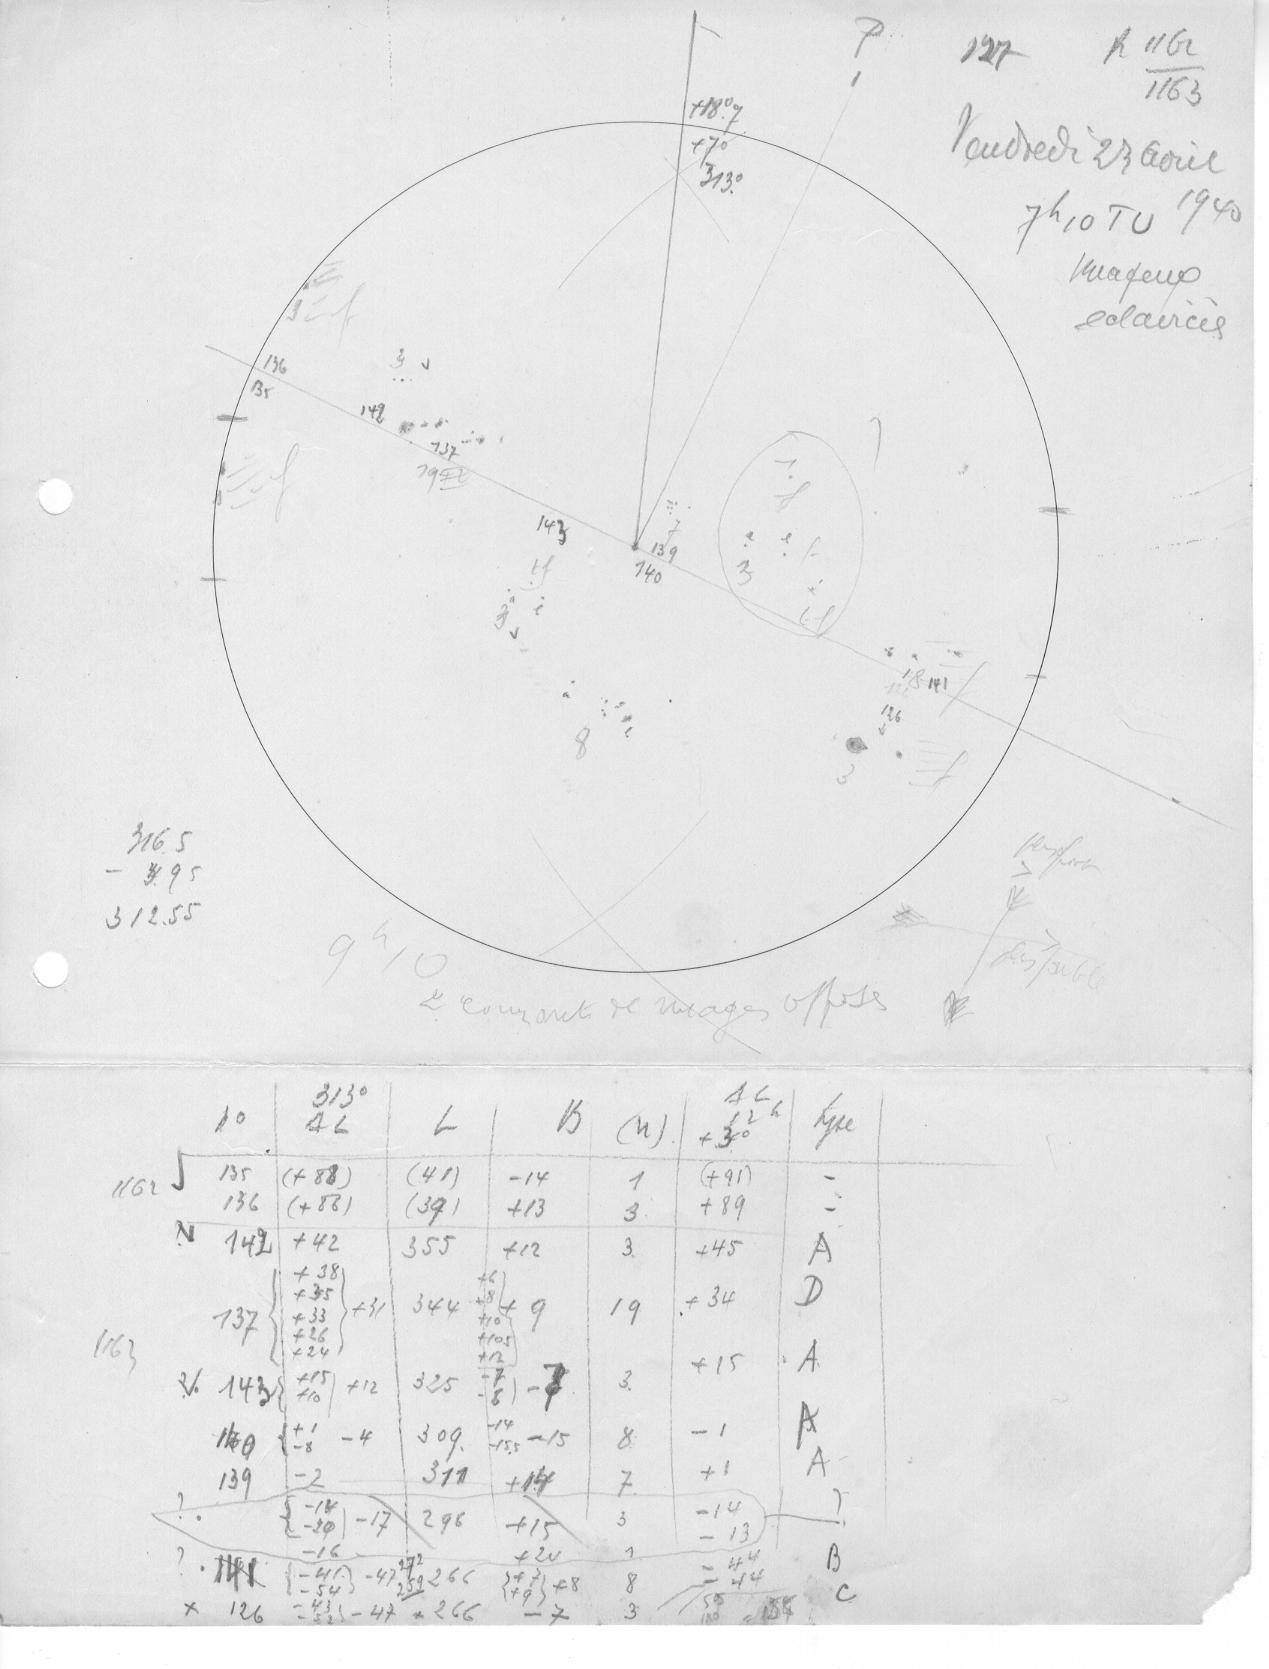 P
127 R 1162
1163
Vendredi 23 Aout
7h10 TU 1940
Nuageux
eclaircies
+18°7
+7°
313°
136
135
3
142
137
19
143
3
7
139
140
1
3
8
18 141
126
3
316.5
- 3.95
312.55
9h10
2 courants de nuages opposés
313°
n° ΔL L B (N) ΔL 12h +3° type
1162 135 (+88) (41) -14 1 (+91) -
136 (+86) (39) +13 3 +89 -
N 142 +42 355 +12 3 +45 A
137 +38 +35 +33 +26 +24 +31 344 +6 +8 +10 +10.5 +12 +9 19 +34 D
1163
143 +15 +10 +12 325 -7 -8 -7 3 +15 A
140 +1 -8 -4 309 -14 -15.5 -15 8 -1 A
139 -2 311 +14 7 +1 A
? -14 -20 -17 296 +15 3 -14 ?
-16 +20 1 -13
? 141 -41 -54 -47 272 259 266 +7 +9 +8 8 -44 B
x 126 -43 -52 -47 266 -7 3 -44 C